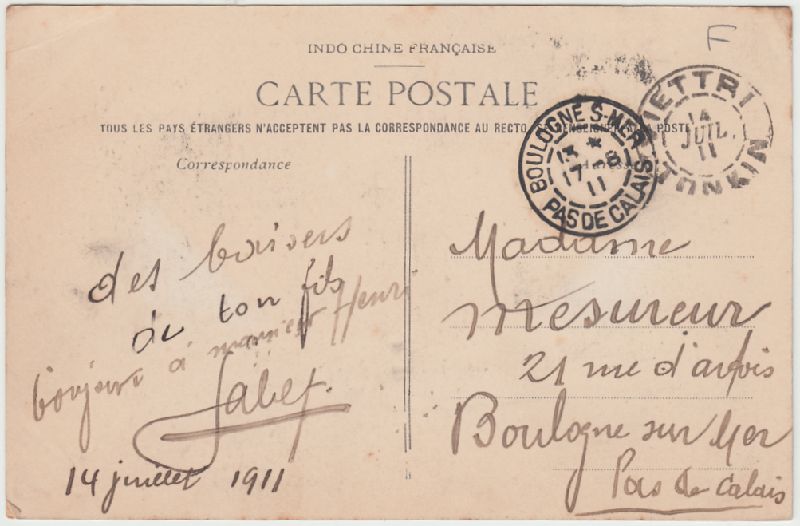 F
INDO CHINE FRANÇAISE
CARTE POSTALE
TOUS LES PAYS ÉTRANGERS N'ACCEPTENT PAS LA CORRESPONDANCE AU RECTO LA POSTE
Correspondance
BOULOGNE S-MER
13 *
17-8
11
PAS DE CALAIS
METTRI
14
JUIL.
11
TONKIN
des baisers
de ton fils
bonjour à Henri
14 juillet 1911
Madame
Mesureur
21 rue d'artois
Boulogne sur Mer
Pas de Calais